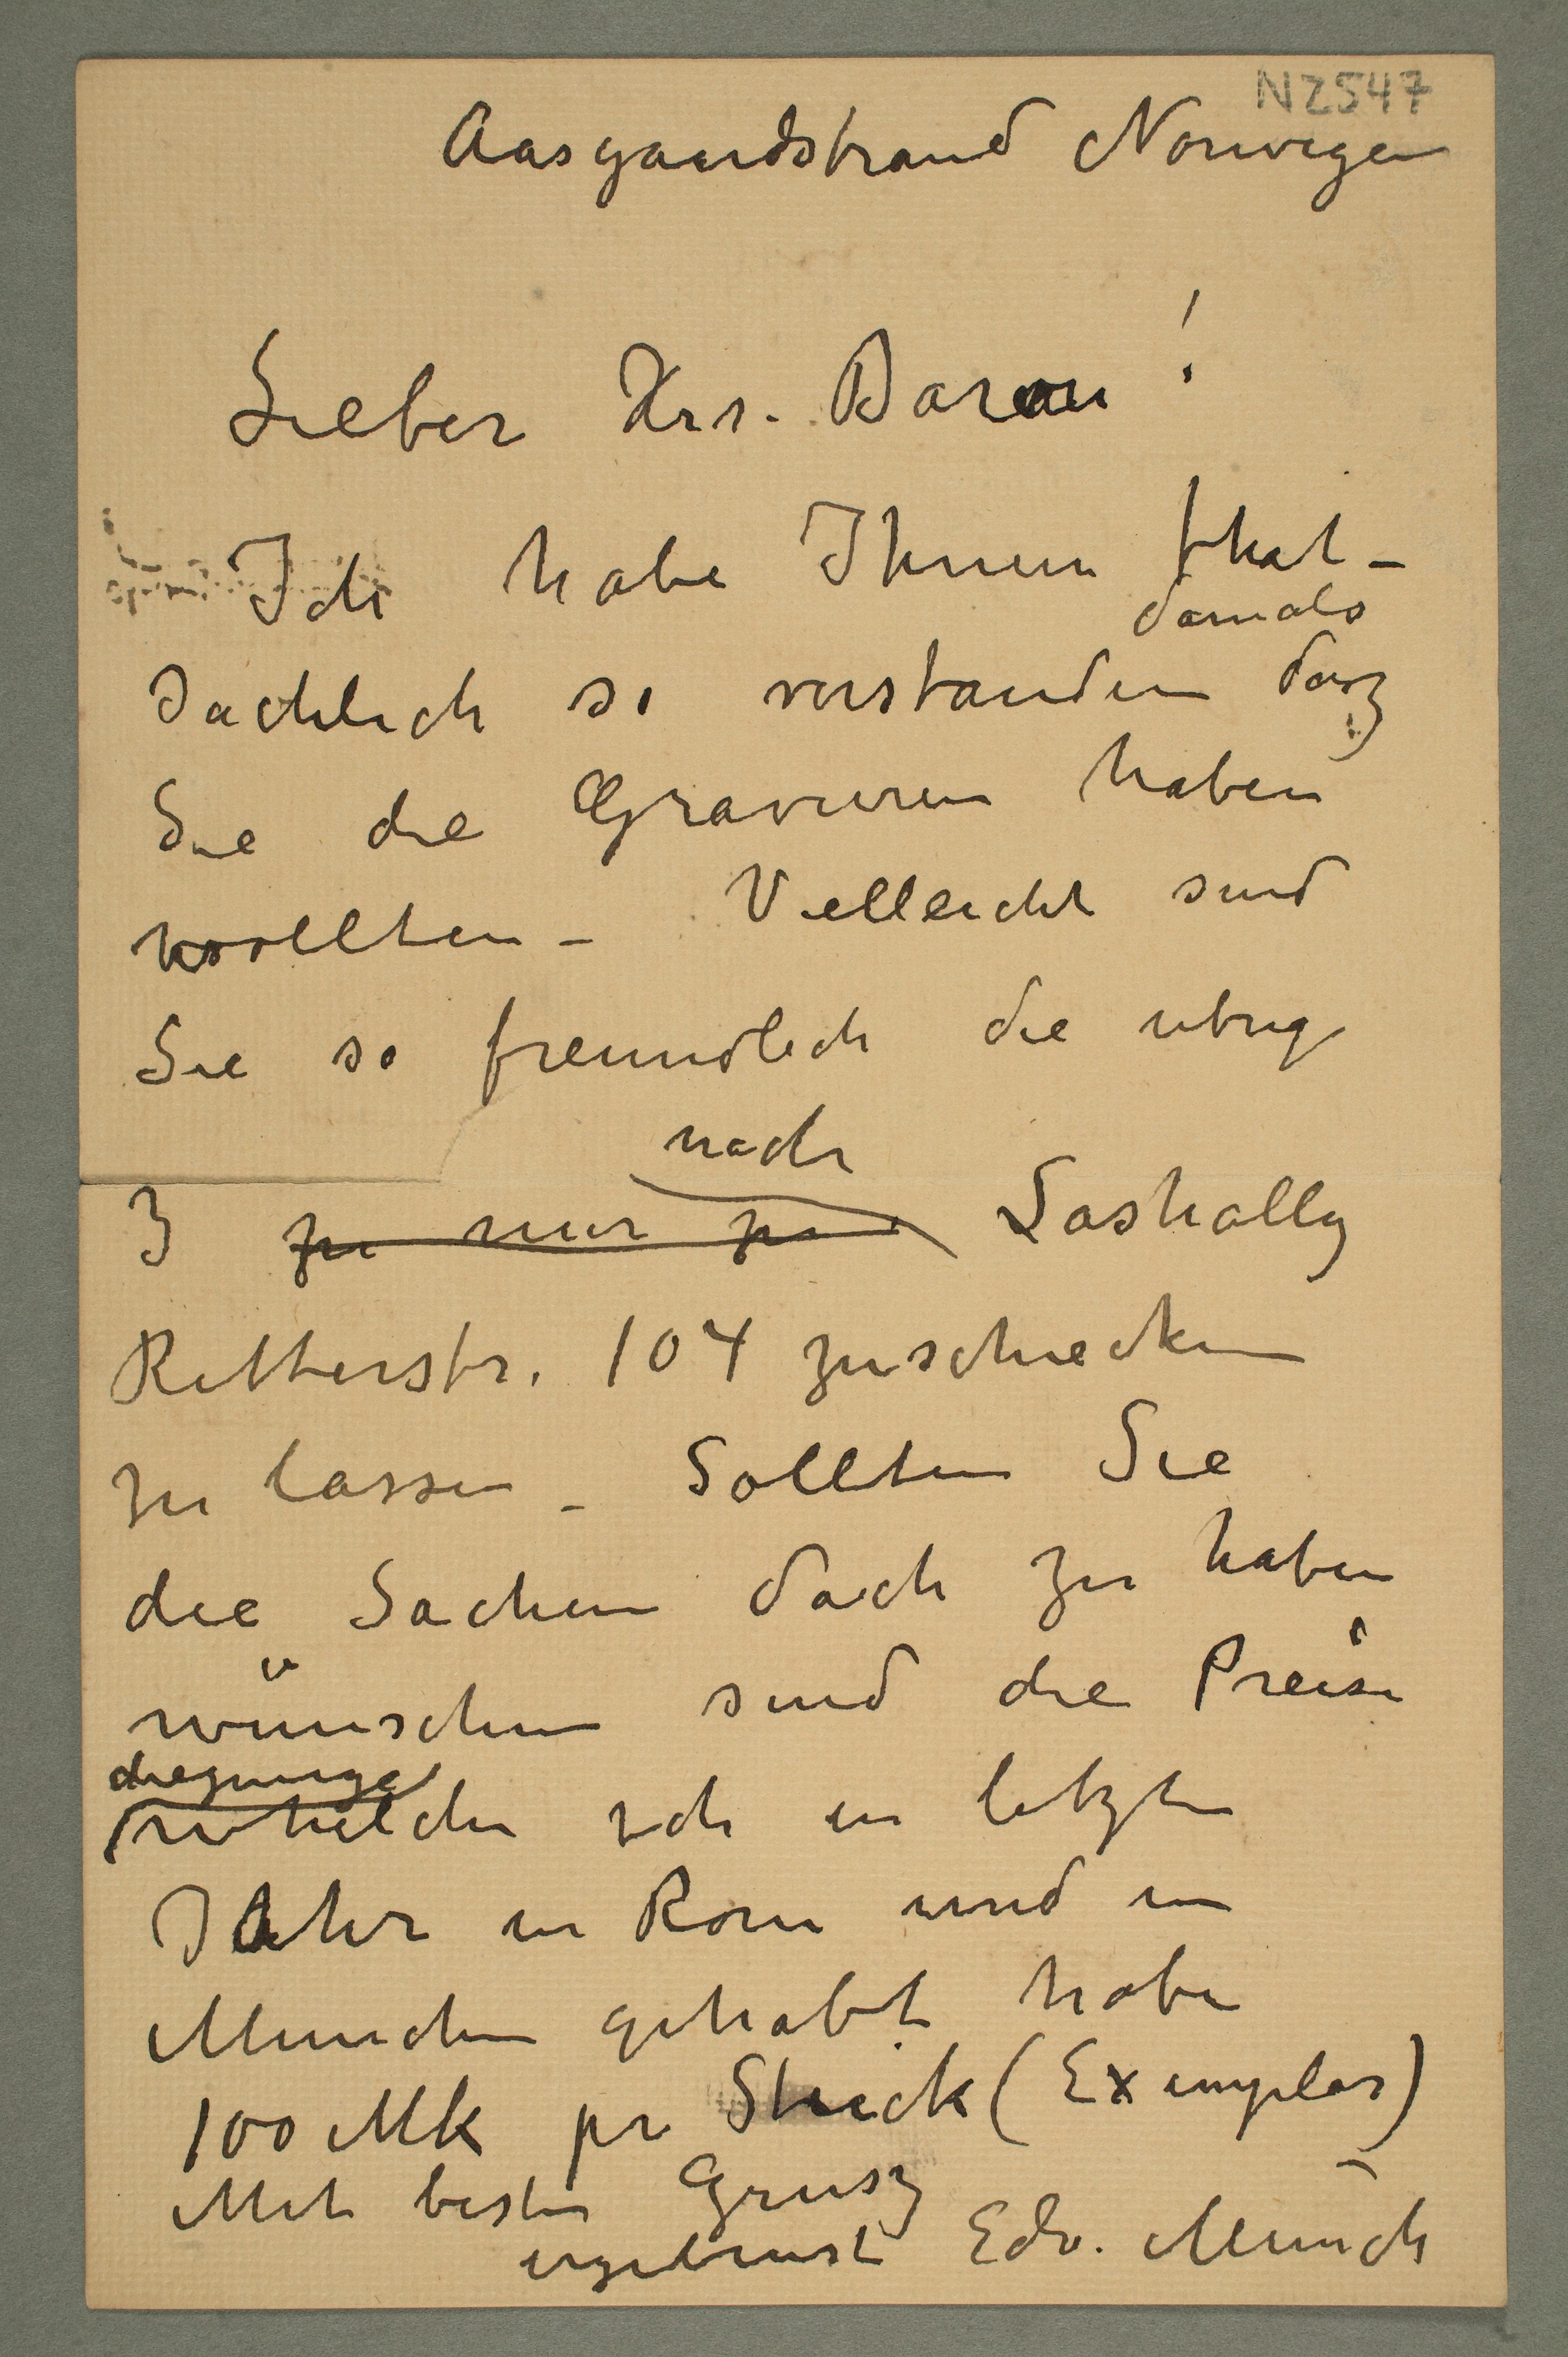 N2547
Aasgaardstrand Norwegen
Lieber Hrr. Baron!
Ich habe Ihnen that-
damals
sächlich so verstanden dasz
Sie die Gravuren haben
wollten – Vielleicht sind
Sie so freundlich die ubrige
nach
3 zu mir zu Lashally
Ritterstr. 104 zuschicken
zu lassen – Sollten Sie
die Sachen doch zu haben
wünschen sind die Preise
diejenige
whelche ich in letzten
Jahr in Rom und in
Munchen gehabt habe
100 Mk pr Stuck (Exemplar) –
Mit besten Grusz
ergebenst Edv. Munch